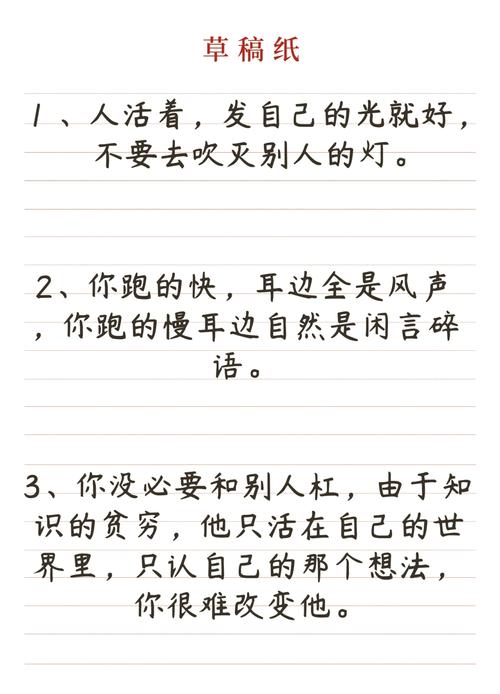 草稿纸
1、人活着，发自己的光就好，
不要去吹灭别人的灯。
2、你跑的快，耳边全是风声
，你跑的慢耳边自然是闲言碎
语。
3、你没必要和别人杠，由于知
识的贫穷，他只活在自己的世
界里，只认自己的那个想法，
你很难改变他。